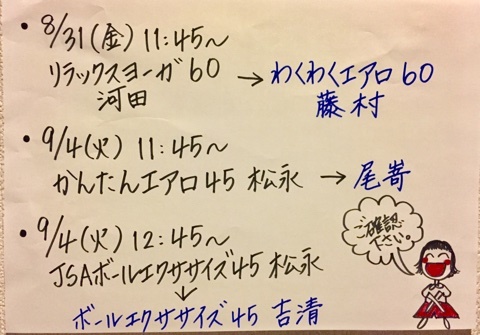 ・8/31(金) 11:45〜
リラックスヨーガ60 → わくわくエアロ60
河田 藤村
・9/4(火) 11:45〜
かんたんエアロ45 松永 → 尾嵜
・9/4(火) 12:45〜
JSAボールエクササイズ45 松永
↓
ボールエクササイズ45 吉清
ご確認
下さい。